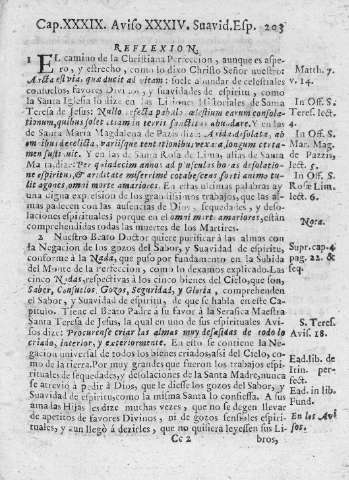 Cap.XXXIX. Aviso XXXIV. Suavid.Esp. 203
REFLEXION.
1 EL camino de la Christiana Perfeccion, aunque es aspero, y estrecho, como lo dixo Christo Señor nuestro:
Matth. 7.
Arcta est via, quæ ducit ad vitam: suele abundar de celestiales
v. 14.
consuelos, favores Divinos, y suavidades de espiritu, como
la Santa Iglesia lo dize en las Liciones Historiales de Santa
In Off. S.
Teresa de Jesus: Nulla refecta pabulo cælestium earum consola-
Teres. lect.
tionum, quibus solet etiam in terris sanctitas abundare. Y en las
4.
de Santa Maria Magdalena de Pazis dize: Arida, desolata, ab
In Off. S.
omnibus derelicta, variisque tentationibus vexata longum certa-
Mar. Mag.
men sustinuit. Y en las de Santa Rosa de Lima, alias de Santa
de Pazzis,
Maria, dize: Per quindecim annos ad plusculas horas desolatio-
lect. 5.
ne spiritus, & ariditate miserrimè contabescens forti animo tu-
In Off. S.
lit agones, omni morte amariores. En estas ultimas palabras ay
Rosæ Lim.
una digna expresion de los grandissimos trabajos, que las al-
lect. 6.
mas padecen con las ausencias de Dios, sequedades, y de-
solaciones espirituales; porque en el omni morte amariores, están
Nota.
comprehendidas todas las muertes de los Martires.
2 Nuestro Beato Doctor quiere purificar à las almas con
la Negacion de los gozos del Sabor, y Suavidad de espiritu,
Supr. cap. 4
conforme à la Nada, que puso por fundamento en la Subida
pag. 22. &
del Monte de la Perfeccion, como lo dexamos explicado. Las
seq.
cinco Nadas, respectivas à los cinco bienes del Cielo, que son,
Saber, Consuelos, Gozos, Seguridad, y Gloria, comprehenden
el Sabor, y Suavidad de espiritu, de que se habla en este Ca-
pitulo. Tiene el Beato Padre à su favor à la Serafica Maestra
Santa Teresa de Jesus, la qual en uno de sus espirituales Avi-
S. Teres.
sos dize: Procurense criar las almas muy desasidas de todo lo
Avis. 18.
criado, interior, y exteriormente. En esto se contiene la Ne-
gacion universal de todos los bienes criados, assi del Cielo, co-
mo de la tierra. Por muy grandes que fueron los trabajos espi-
Ead. lib. de
rituales de sequedades, y desolaciones de la Santa Madre, nunca
Itin. per-
se atreviò à pedir à Dios, que le diesse los gozos del Sabor, y
fect.
Suavidad de espiritu, como la misma Santa lo confiessa. A sus
Ead. in lib.
Fund.
Hijas les dize muchas vezes, que no se degen llevar
de apetitos de favores Divinos, ni de gozos sensibles espiri-
En los Avi
tuales, y aun llegò à dezirles, que no quisiera leyessen sus Li-
sos.
Cc 2 bros,